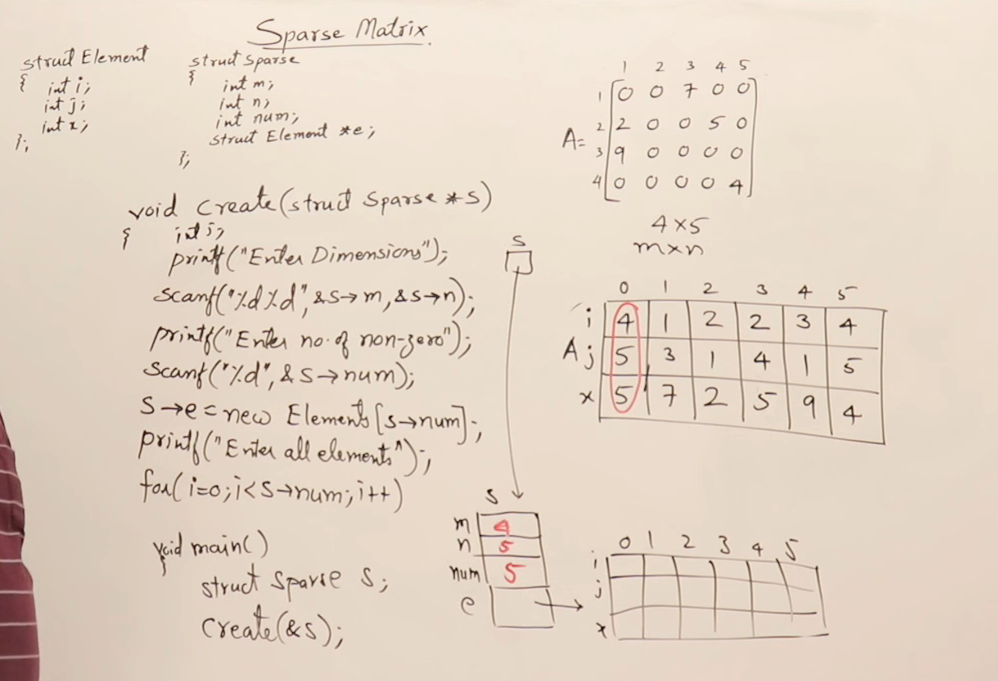 Sparse Matrix
struct Element
{ int i;
int j;
int x;
};
struct Sparse
{ int m;
int n;
int num;
struct Element *e;
};
void create(struct Sparse *s)
{ int i;
printf("Enter Dimensions");
scanf("%d%d",&s→m,&s→n);
printf("Enter no. of non-zero");
scanf("%d",&s→num);
s→e=new Elements[s→num];
printf("Enter all elements");
for(i=0;i<s→num;i++)
void main()
{
struct Sparse s;
create(&s);
1 2 3 4 5
1 0 0 7 0 0
A= 2 2 0 0 5 0
3 9 0 0 0 0
4 0 0 0 0 4
4×5
m×n
0 1 2 3 4 5
i 4 1 2 2 3 4
A j 5 3 1 4 1 5
x 5 7 2 5 9 4
s
s
m 4
n 5
num 5
e
0 1 2 3 4 5
i
j
x